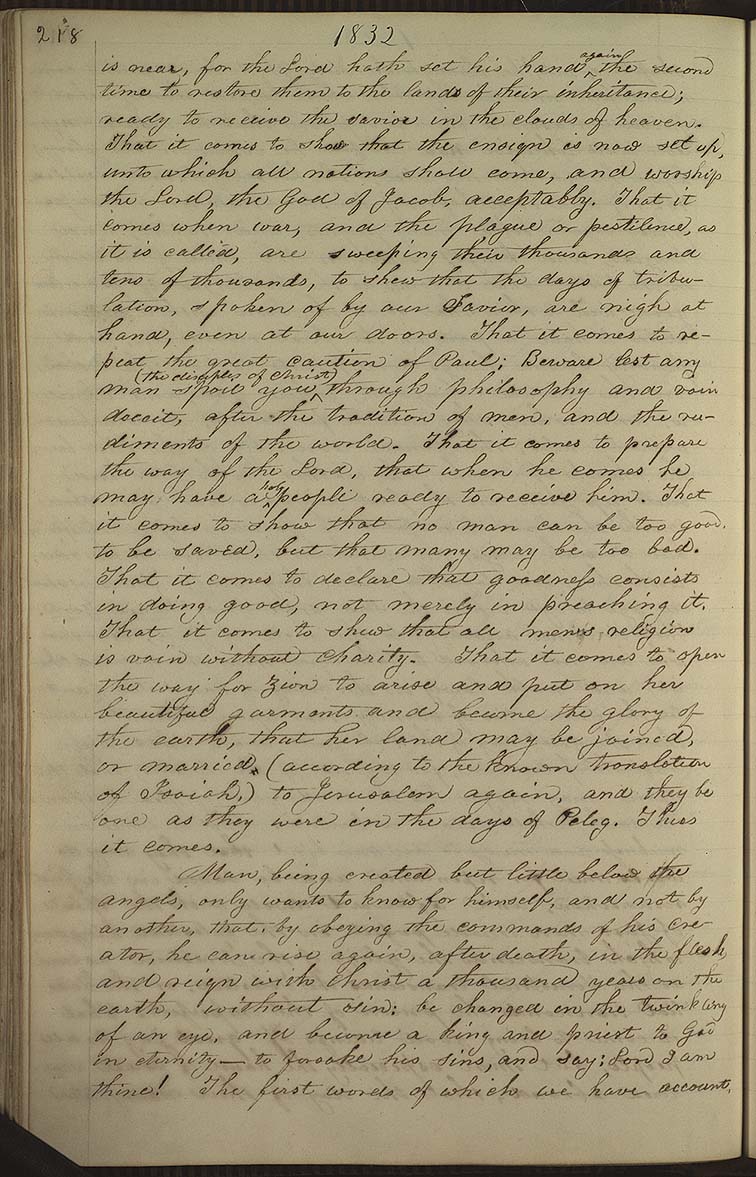 218 1832
is near, for the Lord hath set his hand again the second
time to restore them to the lands of their inheritance;
ready to receive the savior in the clouds of heaven.
That it comes to show that the ensign is now set up,
unto which all nations shall come, and worship
the Lord, the God of Jacob, acceptably. That it
comes when war, and the plague or pestilence, as
it is called, are sweeping their thousands and
tens of thousands, to shew that the days of tribu-
lation, spoken of by our Savior, are nigh at
hand, even at our doors. That it comes to re-
peat the great caution of Paul; Beware lest any
(the disciples of Christ)
man spoil you through philosophy and vain
deceit, after the tradition of men, and the ru-
diments of the world. That it comes to prepare
the way of the Lord, that when he comes he
may have a holy people ready to receive him. That
it comes to show that no man can be too good,
to be saved, but that many may be too bad.
That it comes to declare that goodness consists
in doing good, not merely in preaching it.
That it comes to shew that all men's religion
is vain without charity. That it comes to open
the way for Zion to arise and put on her
beautiful garments and become the glory of
the earth, that her land may be joined,
or married, (according to the known translation
of Isaiah,) to Jerusalem again, and they be
one as they were in the days of Peleg. Thus
it comes.
Man, being created but little below the
angels, only wants to know for himself, and not by
another, that, by obeying the commands of his cre-
ator, he can rise again, after death, in the flesh,
and reign with Christ a thousand years on the
earth, without sin; be changed in the twinkling
of an eye, and become a king and priest to God
in eternity— to forsake his sins, and say: Lord I am
thine! The first words of which we have account,